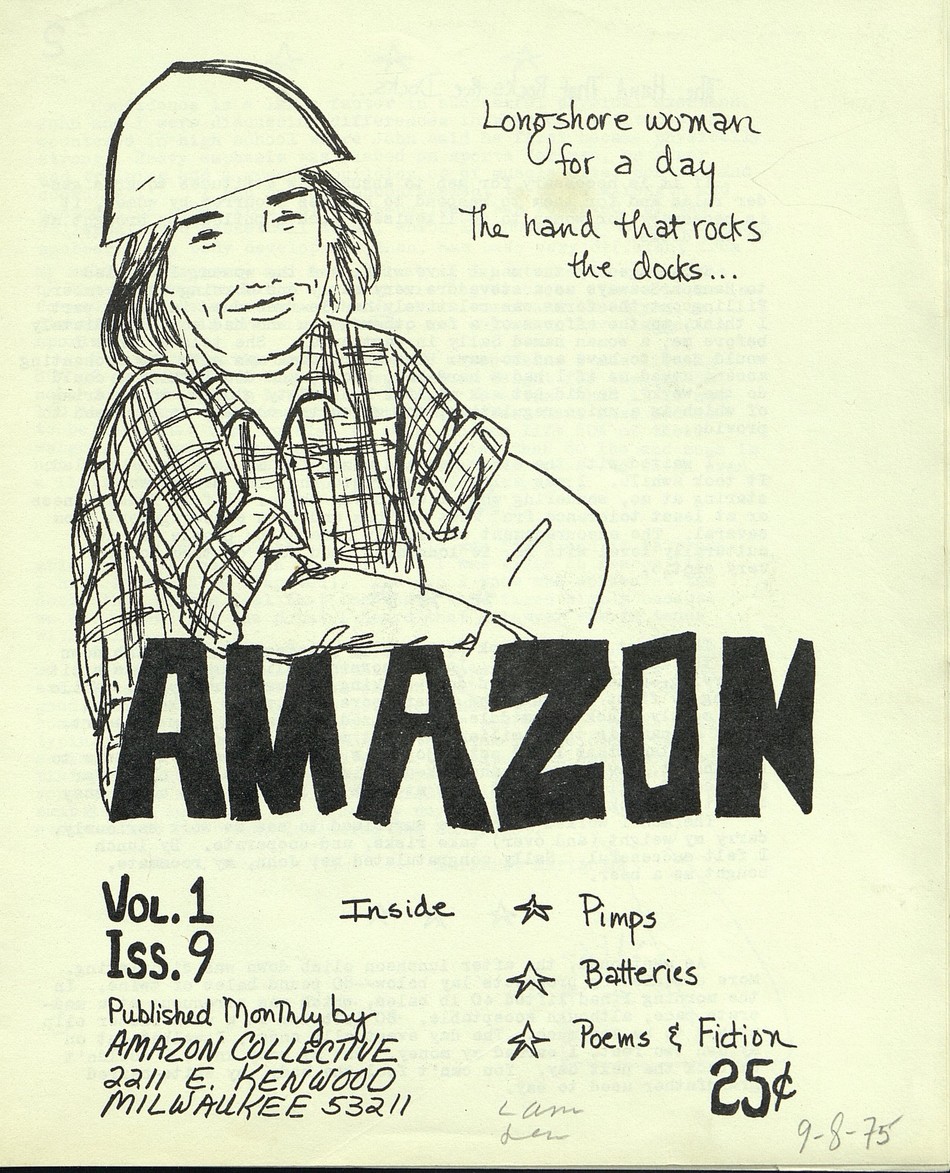 Longshore woman
for a day
The hand that rocks
the docks...
AMAZON
VOL. 1
ISS. 9
Inside ☆ Pimps
☆ Batteries
☆ Poems & Fiction
Published Monthly by
AMAZON COLLECTIVE
2211 E. KENWOOD
MILWAUKEE 53211
25¢
9-8-75